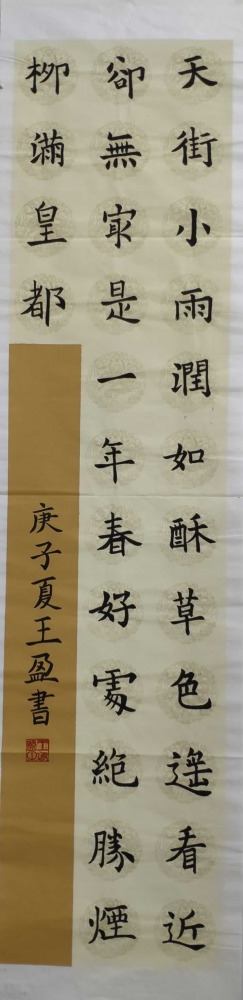 天街小雨潤如酥草色遥看近
卻無㝡是一年春好處絕勝煙
柳滿皇都
庚子夏王盈書